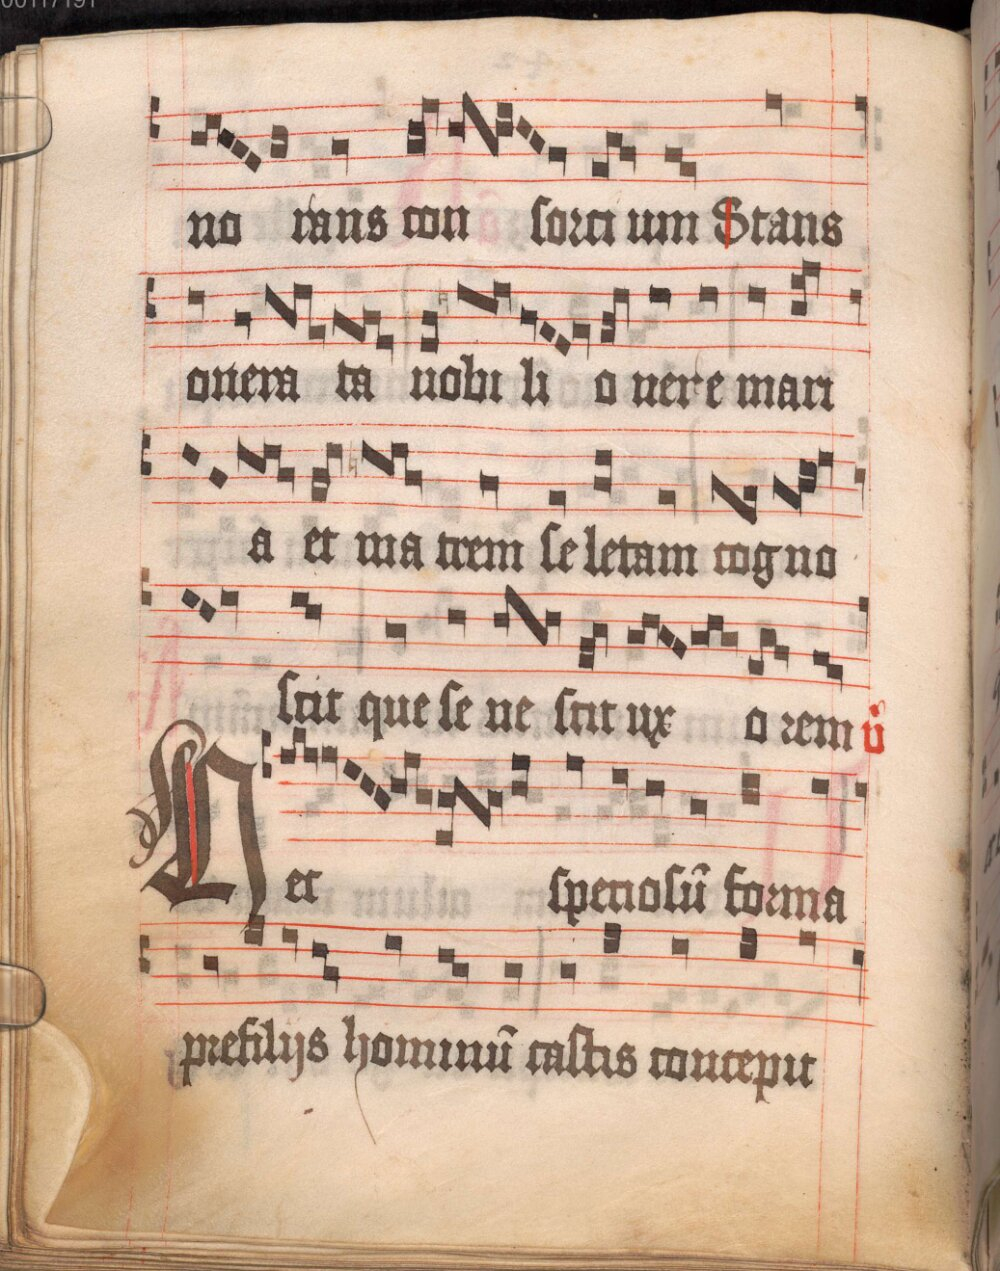 no rans con sorci um Stans
onera ta nobi li o nere mari
a et ma trem se letam cogno
scit que se ne scit ux o rem v̄
Net speciosū forma
prefilijs hominū castis concepit